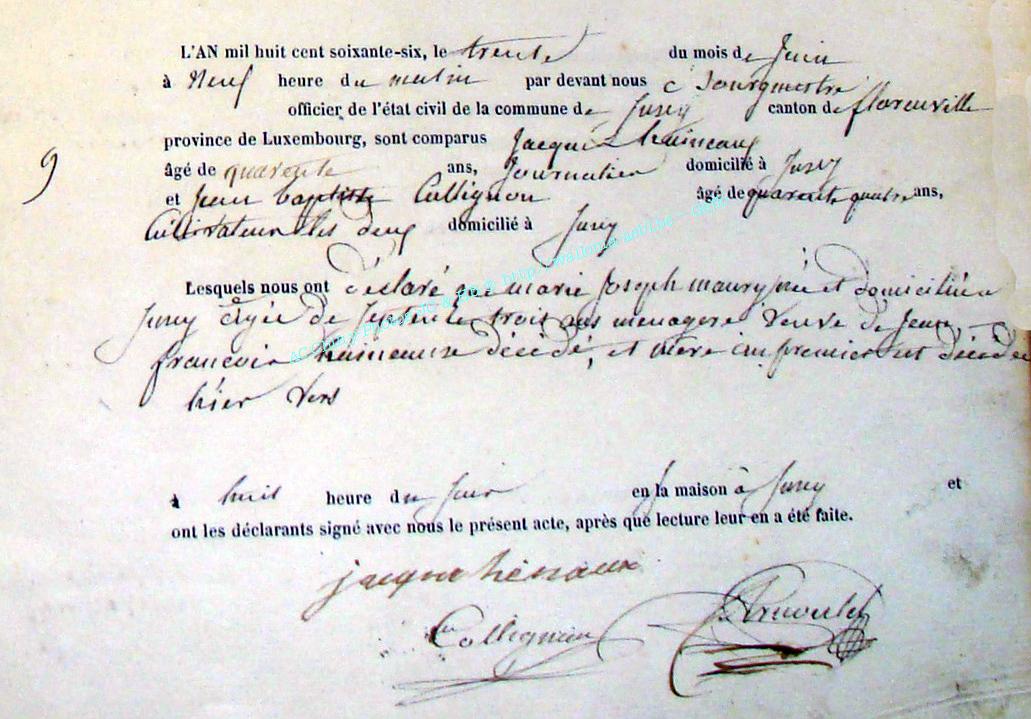 L'AN mil huit cent soixante-six, le trente du mois de Juin
à Neuf heure du matin par devant nous Bourgmestre
officier de l'état civil de la commune de Suxy canton de florenville
province de Luxembourg, sont comparus Jacque
âgé de quarente ans, Journalier domicilié à Suxy
9
et Jean baptiste Collignon âgé de quarente quatre ans,
Cultivateur les deux domicilié à Suxy
Lesquels nous ont déclaré que marie Joseph maury née et domiciliée a
Suxy âgée de septente trois ans menagere Veuve de Jean
francois décédé, et mere au premier est décédée
hier vers
à huit heure du Soir en sa maison à Suxy et
ont les déclarants signé avec nous le présent acte, après que lecture leur en a été faite.
jacque hénaux
Collignon